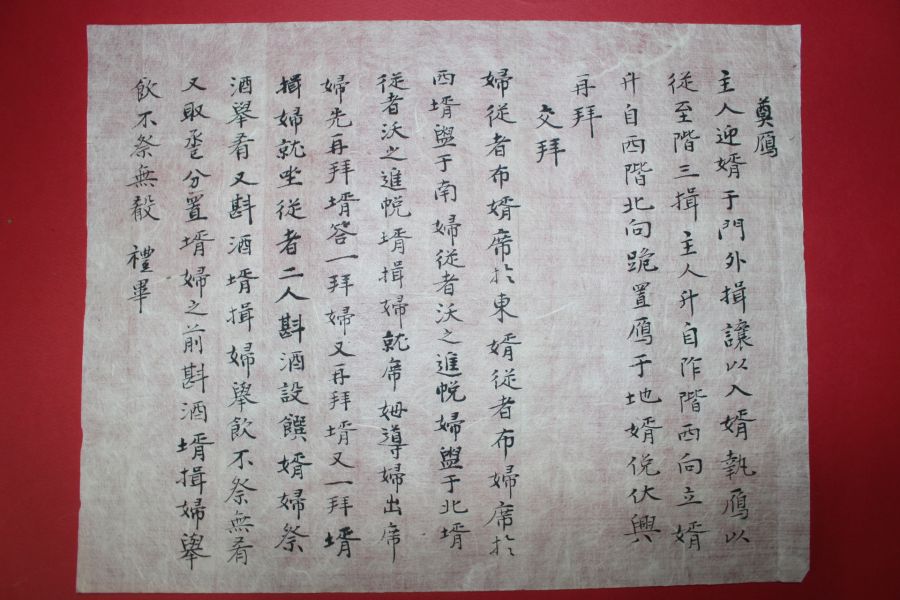 奠鴈
主人迎婿于門外揖讓以入婿執鴈以
從至階三揖主人升自阼階西向立婿
升自西階北向跪置鴈于地婿俛伏興
再拜
交拜
婦従者布婿席扵東婿従者布婦席扵
西壻盥于南婦従者沃之進帨婦盥于北壻
従者沃之進帨壻揖婦就席姆導婦出席
婦先再拜壻答一拜婦又再拜壻又一拜壻
揖婦就坐従者二人斟酒設饌婿婦祭
酒舉肴又斟酒壻揖婦舉飲不祭無肴
又取巹分置壻婦之前斟酒壻揖婦舉
飲不祭無殽 禮畢